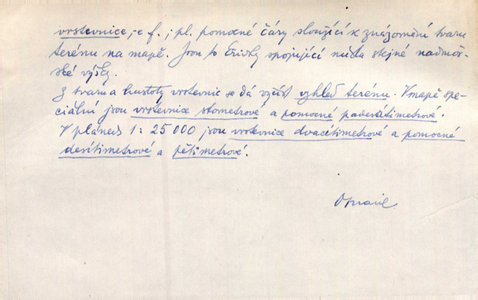 vrstevnice, -e f., pl. pomocné čáry sloužící k znázornění tvaru
terénu na mapě. Jsou to křivky spojující místa stejné nadmoř-
ské výšky.
Z tvaru a hustoty vrstevnic se dá vyčíst vzhled terénu. V mapě spe-
ciální jsou vrstevnice stometrové a pomocné padesátimetrové.
V plánech 1:25 000 jsou vrstevnice dvacetimetrové a pomocné
desítimetrové a pětimetrové.